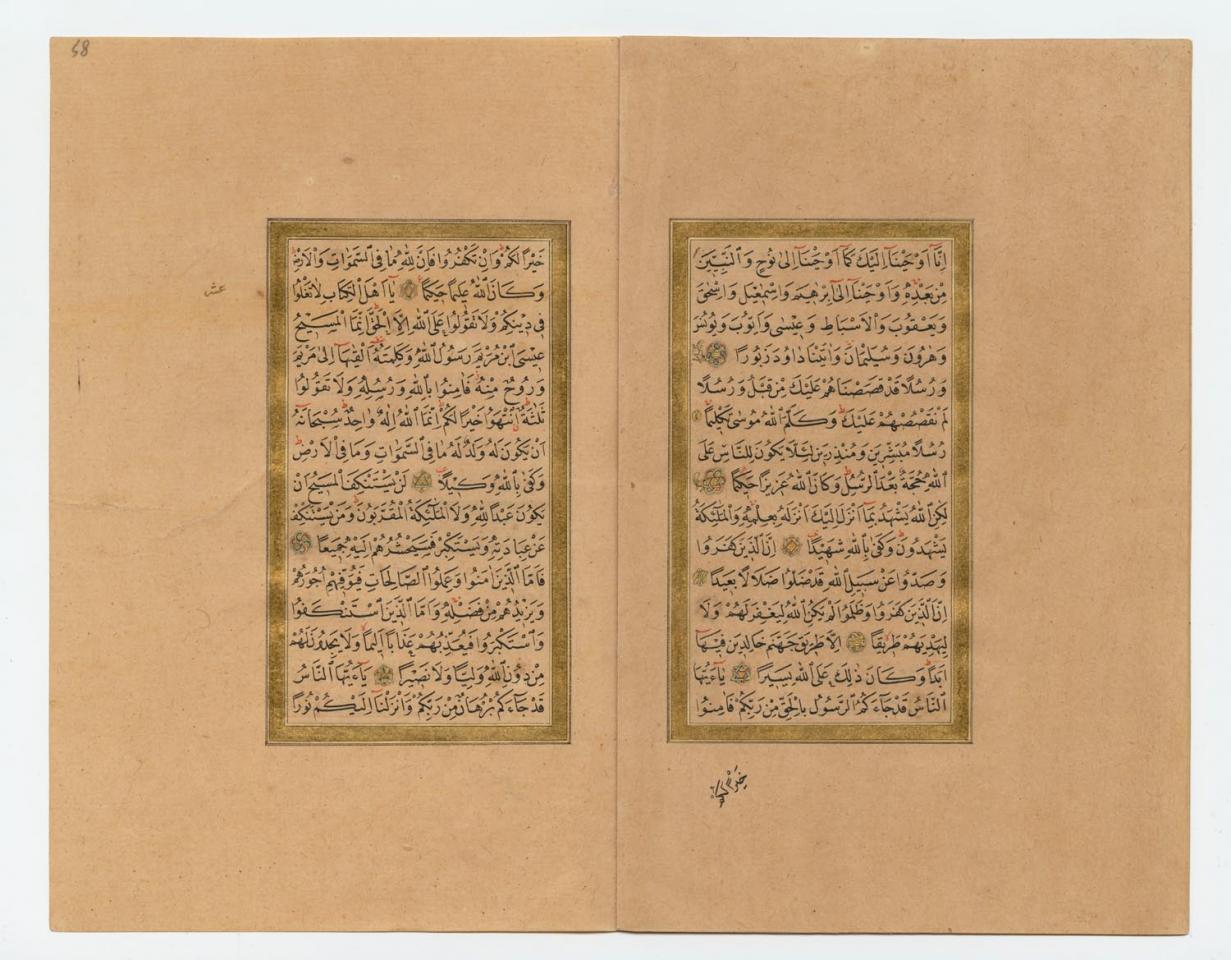 اِنَّٓا اَوْحَيْنَٓا اِلَيْكَ كَمَٓا اَوْحَيْنَٓا اِلٰى نُوحٍ وَالنَّبِيّٖنَ
مِنْ بَعْدِهٖ وَاَوْحَيْنَٓا اِلٰٓى اِبْرٰهٖيمَ وَاِسْمٰعٖيلَ وَاِسْحٰقَ
وَيَعْقُوبَ وَالْاَسْبَاطِ وَعٖيسٰى وَاَيُّوبَ وَيُونُسَ
وَهٰرُونَ وَسُلَيْمٰنَ وَاٰتَيْنَا دَاوُدَ زَبُورًا
وَرُسُلًا قَدْ قَصَصْنَاهُمْ عَلَيْكَ مِنْ قَبْلُ وَرُسُلًا
لَمْ نَقْصُصْهُمْ عَلَيْكَ وَكَلَّمَ اللّٰهُ مُوسٰى تَكْلٖيمًا
رُسُلًا مُبَشِّرٖينَ وَمُنْذِرٖينَ لِئَلَّا يَكُونَ لِلنَّاسِ عَلَى
اللّٰهِ حُجَّةٌ بَعْدَ الرُّسُلِ وَكَانَ اللّٰهُ عَزٖيزًا حَكٖيمًا
لٰكِنِ اللّٰهُ يَشْهَدُ بِمَٓا اَنْزَلَ اِلَيْكَ اَنْزَلَهُ بِعِلْمِهٖ وَالْمَلٰٓئِكَةُ
يَشْهَدُونَ وَكَفٰى بِاللّٰهِ شَهٖيدًا اِنَّ الَّذٖينَ كَفَرُوا
وَصَدُّوا عَنْ سَبٖيلِ اللّٰهِ قَدْ ضَلُّوا ضَلَالًا بَعٖيدًا
اِنَّ الَّذٖينَ كَفَرُوا وَظَلَمُوا لَمْ يَكُنِ اللّٰهُ لِيَغْفِرَ لَهُمْ وَلَا
لِيَهْدِيَهُمْ طَرٖيقًا اِلَّا طَرٖيقَ جَهَنَّمَ خَالِدٖينَ فٖيهَٓا
اَبَدًا وَكَانَ ذٰلِكَ عَلَى اللّٰهِ يَسٖيرًا يَٓا اَيُّهَا
النَّاسُ قَدْ جَٓاءَكُمُ الرَّسُولُ بِالْحَقِّ مِنْ رَبِّكُمْ فَاٰمِنُوا
خَيْرًا لَكُمْ
58
خَيْرًا لَكُمْ وَاِنْ تَكْفُرُوا فَاِنَّ لِلّٰهِ مَا فِى السَّمٰوَاتِ وَالْاَرْضِ
وَكَانَ اللّٰهُ عَلٖيمًا حَكٖيمًا يَٓا اَهْلَ الْكِتَابِ لَا تَغْلُوا
عشر
فٖى دٖينِكُمْ وَلَا تَقُولُوا عَلَى اللّٰهِ اِلَّا الْحَقَّ اِنَّمَا الْمَسٖيحُ
عٖيسَى ابْنُ مَرْيَمَ رَسُولُ اللّٰهِ وَكَلِمَتُهُ اَلْقٰيهَٓا اِلٰى مَرْيَمَ
وَرُوحٌ مِنْهُ فَاٰمِنُوا بِاللّٰهِ وَرُسُلِهٖ وَلَا تَقُولُوا
ثَلٰثَةٌ اِنْتَهُوا خَيْرًا لَكُمْ اِنَّمَا اللّٰهُ اِلٰهٌ وَاحِدٌ سُبْحَانَهُ
اَنْ يَكُونَ لَهُ وَلَدٌ لَهُ مَا فِى السَّمٰوَاتِ وَمَا فِى الْاَرْضِ
وَكَفٰى بِاللّٰهِ وَكٖيلًا لَنْ يَسْتَنْكِفَ الْمَسٖيحُ اَنْ
يَكُونَ عَبْدًا لِلّٰهِ وَلَا الْمَلٰٓئِكَةُ الْمُقَرَّبُونَ وَمَنْ يَسْتَنْكِفْ
عَنْ عِبَادَتِهٖ وَيَسْتَكْبِرْ فَسَيَحْشُرُهُمْ اِلَيْهِ جَمٖيعًا
فَاَمَّا الَّذٖينَ اٰمَنُوا وَعَمِلُوا الصَّالِحَاتِ فَيُوَفّٖيهِمْ اُجُورَهُمْ
وَيَزٖيدُهُمْ مِنْ فَضْلِهٖ وَاَمَّا الَّذٖينَ اسْتَنْكَفُوا
وَاسْتَكْبَرُوا فَيُعَذِّبُهُمْ عَذَابًا اَلٖيمًا وَلَا يَجِدُونَ لَهُمْ
مِنْ دُونِ اللّٰهِ وَلِيًّا وَلَا نَصٖيرًا يَٓا اَيُّهَا النَّاسُ
قَدْ جَٓاءَكُمْ بُرْهَانٌ مِنْ رَبِّكُمْ وَاَنْزَلْنَٓا اِلَيْكُمْ نُورًا